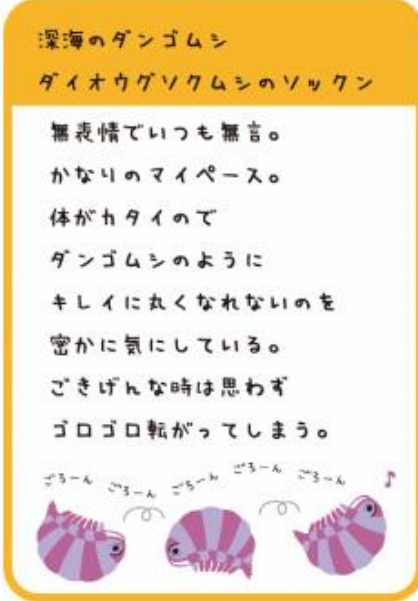 深海のダンゴムシ
ダイオウグソクムシのソックン
無表情でいつも無言。
かなりのマイペース。
体がカタイので
ダンゴムシのように
キレイに丸くなれないのを
密かに気にしている。
ごきげんな時は思わず
ゴロゴロ転がってしまう。
ごろーん ごろーん ごろーん ごろーん ごろーん